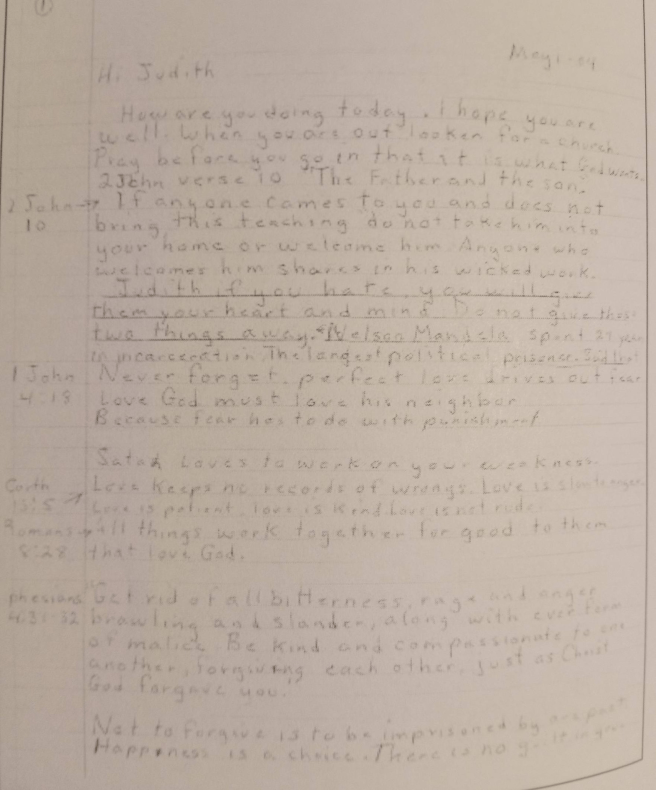 1
May 1-04
Hi Judith
How are you doing today. I hope you are
well. When you are out looken for a church
Pray before you go in that it is what God wants.
2 John verse 10 "The Father and the son.
2 John → If anyone comes to you and does not
10 bring this teaching do not take him into
your home or welcome him. Anyone who
welcomes him shares in his wicked work.
Judith if you hate, you will give
them your heart and mind. Do not give thos
two things away. "Nelson Mandela spent 27 years
in incarceration. The longest political prisoner.
1 John Never forget, perfect love drives out fear
4:18 Love God must love his neighbor
Because fear has to do with punishment
Satan Loves to work on your weakness.
Corth Love keeps no records of wrongs. Love is slow to anger
13:5 Love is patient, love is kind. Love is not rude.
Romans → All things work together for good to them
8:28 that love God.
phesians Get rid of all bitterness, rage and anger
4:31-32 brawling and slander, along with ever form
of malice. Be kind and compassionate to one
another, forgiving each other, just as Christ
God forgave you."
Not to forgive is to be imprisoned by are past
Happness is a choice. There is no